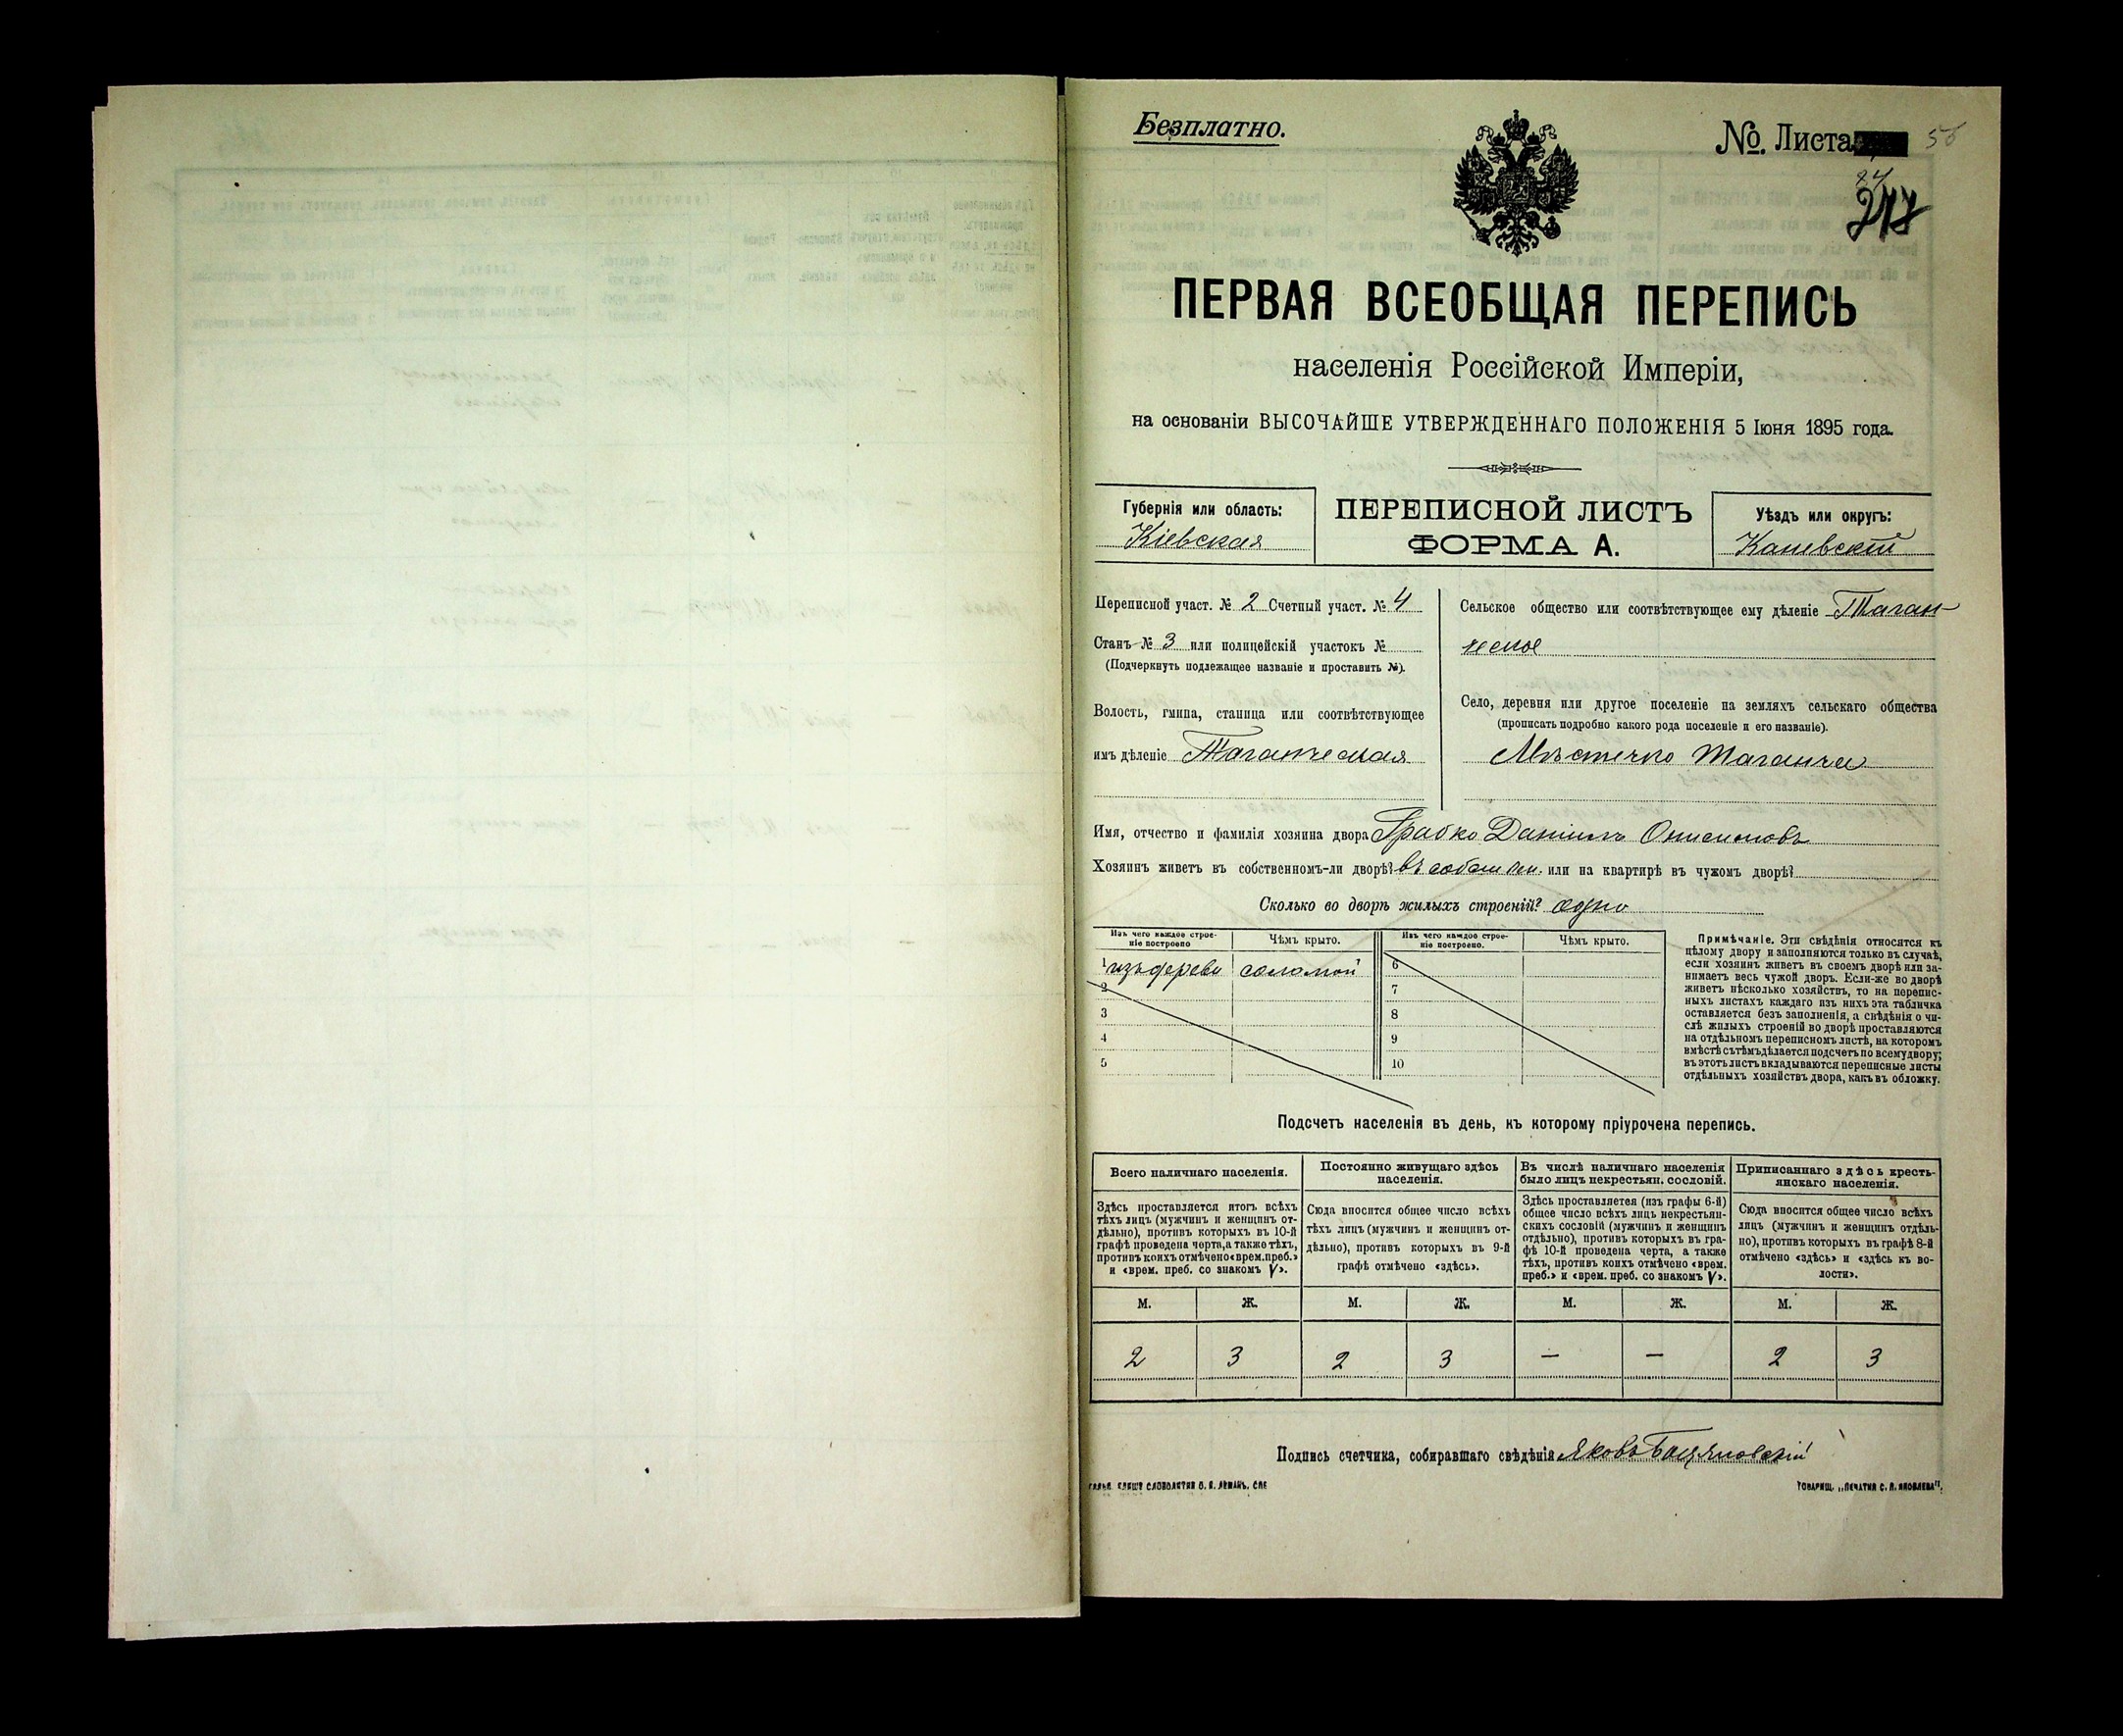 Безплатно.
№. Листа
ПЕРВАЯ ВСЕОБЩАЯ ПЕРЕПИСЬ
населенія Россійской Имперіи,
на основаніи ВЫСОЧАЙШЕ УТВЕРЖДЕННАГО ПОЛОЖЕНІЯ 5 Іюня 1895 года.
Губернія или область:
Кіевская
ПЕРЕПИСНОЙ ЛИСТЪ
ФОРМА А.
Уѣздъ или округъ:
Каневскій
Переписной участ. № 2 Счетный участ. № 4
Станъ № 3 или полицейскій участокъ №
(Подчеркнуть подлежащее названіе и проставить №).
Волость, гмина, станица или соотвѣтствующее
имъ дѣленіе Таганческая
Сельское общество или соотвѣтствующее ему дѣленіе Таган-
ческое
Село, деревня или другое поселеніе на земляхъ сельскаго общества
(прописать подробно какого рода поселеніе и его названіе).
Мѣстечко Таганча
Имя, отчество и фамилія хозяина двора Грабко Даніилъ Онисимовъ
Хозяинъ живетъ въ собственномъ-ли дворѣ? въ собствен. или на квартирѣ въ чужомъ дворѣ?
Сколько во дворѣ жилыхъ строеній? одно
Изъ чего каждое строе-
ніе построено
Чѣмъ крыто.
Изъ чего каждое строе-
ніе построено.
Чѣмъ крыто.
1 изъ дерева соломой 6
2 7
3 8
4 9
5 10
Примѣчаніе. Эти свѣдѣнія относятся къ
цѣлому двору и заполняются только въ случаѣ,
если хозяинъ живетъ въ своемъ дворѣ или за-
нимаетъ весь чужой дворъ. Если-же во дворѣ
живетъ нѣсколько хозяйствъ, то на перепис-
ныхъ листахъ каждаго изъ нихъ эта табличка
оставляется безъ заполненія, а свѣдѣнія о чи-
слѣ жилыхъ строеній во дворѣ проставляются
на отдѣльномъ переписномъ листѣ, на которомъ
вмѣстѣ съ тѣмъ дѣлается подсчетъ по всему двору;
въ этотъ листъ вкладываются переписные листы
отдѣльныхъ хозяйствъ двора, какъ въ обложку.
Подсчетъ населенія въ день, къ которому пріурочена перепись.
Всего наличнаго населенія.
Здѣсь проставляется итогъ всѣхъ
тѣхъ лицъ (мужчинъ и женщинъ от-
дѣльно), противъ которыхъ въ 10-й
графѣ проведена черта, а также тѣхъ,
противъ коихъ отмѣчено «врем. преб.»
и «врем. преб. со знакомъ V».
Постоянно живущаго здѣсь
населенія.
Сюда вносится общее число всѣхъ
тѣхъ лицъ (мужчинъ и женщинъ от-
дѣльно), противъ которыхъ въ 9-й
графѣ отмѣчено «здѣсь».
Въ числѣ наличнаго населенія
было лицъ некрестьян. сословій.
Здѣсь проставляется (изъ графы 6-й)
общее число всѣхъ лицъ некрестьян-
скихъ сословій (мужчинъ и женщинъ
отдѣльно), противъ которыхъ въ гра-
фѣ 10-й проведена черта, а также
тѣхъ, противъ коихъ отмѣчено «врем.
преб.» и «врем. преб. со знакомъ V».
Приписаннаго здѣсь кресть-
янскаго населенія.
Сюда вносится общее число всѣхъ
лицъ (мужчинъ и женщинъ отдѣль-
но), противъ которыхъ въ графѣ 8-й
отмѣчено «здѣсь» и «здѣсь къ во-
лости».
М. Ж. М. Ж. М. Ж. М. Ж.
2 3 2 3 — — 2 3
Подпись счетчика, собиравшаго свѣдѣнія Яковъ
ТОВАРИЩ. „ПЕЧАТНЯ С. П. ЯКОВЛЕВА".